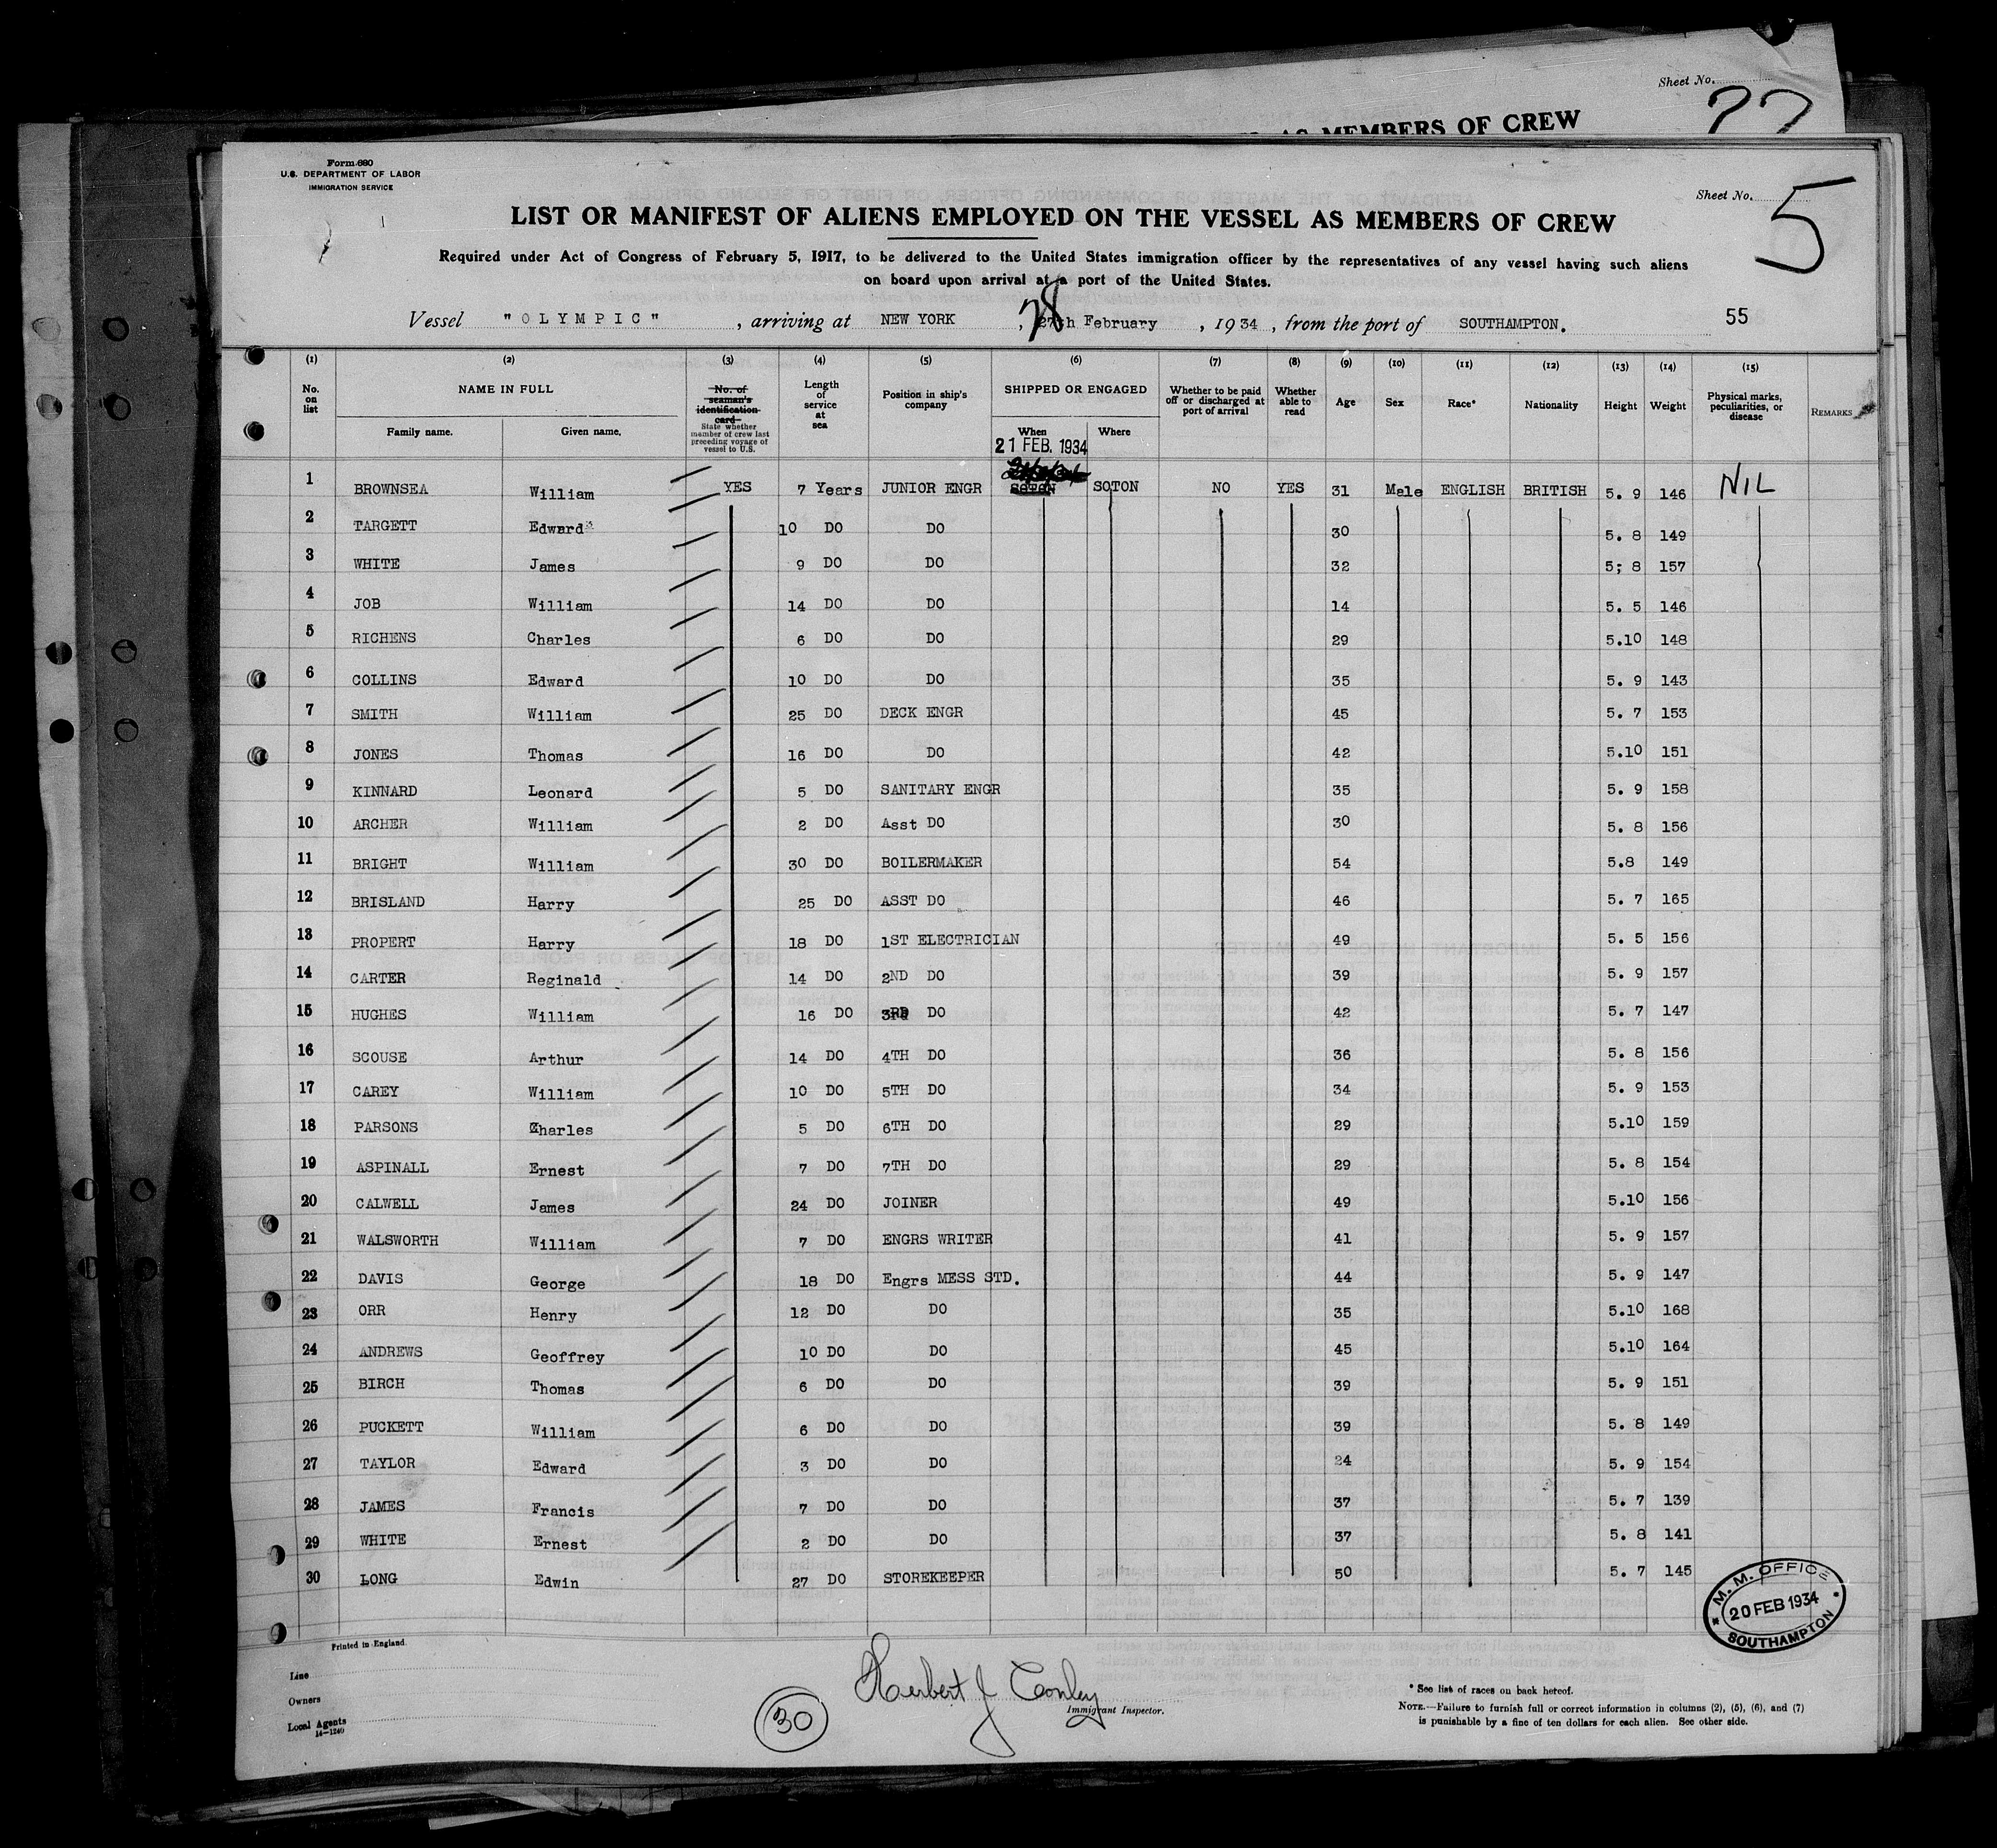 Sheet No.
AS MEMBERS OF CREW
Form 680
U.S. DEPARTMENT OF LABOR
IMMIGRATION SERVICE
Sheet No. 5
LIST OR MANIFEST OF ALIENS EMPLOYED ON THE VESSEL AS MEMBERS OF CREW
Required under Act of Congress of February 5, 1917, to be delivered to the United States immigration officer by the representatives of any vessel having such aliens
on board upon arrival at a port of the United States.
Vessel "OLYMPIC", arriving at NEW YORK, 28 27th February, 1934, from the port of SOUTHAMPTON. 55
(1) (2) (3) (4) (5) (6) (7) (8) (9) (10) (11) (12) (13) (14) (15)
No. on list NAME IN FULL Family name. Given name. No. of seaman's identification card State whether member of crew last preceding voyage of vessel to U.S. Length of service at sea Position in ship's company SHIPPED OR ENGAGED When Where Whether to be paid off or discharged at port of arrival Whether able to read Age Sex Race* Nationality Height Weight Physical marks, peculiarities, or disease REMARKS
21 FEB. 1934
1 BROWNSEA William YES 7 Years JUNIOR ENGR SOTON SOTON NO YES 31 Male ENGLISH BRITISH 5. 9 146 NIL
2 TARGETT Edward 10 DO DO 30 5. 8 149
3 WHITE James 9 DO DO 32 5; 8 157
4 JOB William 14 DO DO 14 5. 5 146
5 RICHENS Charles 6 DO DO 29 5.10 148
6 COLLINS Edward 10 DO DO 35 5. 9 143
7 SMITH William 25 DO DECK ENGR 45 5. 7 153
8 JONES Thomas 16 DO DO 42 5.10 151
9 KINNARD Leonard 5 DO SANITARY ENGR 35 5. 9 158
10 ARCHER William 2 DO Asst DO 30 5. 8 156
11 BRIGHT William 30 DO BOILERMAKER 54 5.8 149
12 BRISLAND Harry 25 DO ASST DO 46 5. 7 165
13 PROPERT Harry 18 DO 1ST ELECTRICIAN 49 5. 5 156
14 CARTER Reginald 14 DO 2ND DO 39 5. 9 157
15 HUGHES William 16 DO 3RD DO 42 5. 7 147
16 SCOUSE Arthur 14 DO 4TH DO 36 5. 8 156
17 CAREY William 10 DO 5TH DO 34 5. 9 153
18 PARSONS Charles 5 DO 6TH DO 29 5.10 159
19 ASPINALL Ernest 7 DO 7TH DO 29 5. 8 154
20 CALWELL James 24 DO JOINER 49 5.10 156
21 WALSWORTH William 7 DO ENGRS WRITER 41 5. 9 157
22 DAVIS George 18 DO Engrs MESS STD. 44 5. 9 147
23 ORR Henry 12 DO DO 35 5.10 168
24 ANDREWS Geoffrey 10 DO DO 45 5.10 164
25 BIRCH Thomas 6 DO DO 39 5. 9 151
26 PUCKETT William 6 DO DO 39 5. 8 149
27 TAYLOR Edward 3 DO DO 24 5. 9 154
28 JAMES Francis 7 DO DO 37 5. 7 139
29 WHITE Ernest 2 DO DO 37 5. 8 141
30 LONG Edwin 27 DO STOREKEEPER 50 5. 7 145
M. M. OFFICE
20 FEB 1934
SOUTHAMPTON
Printed in England.
Line
Owners
Local Agents
14-1240
30
Herbert J Conley
Immigrant Inspector.
* See list of races on back hereof.
NOTE.—Failure to furnish full or correct information in columns (2), (5), (6), and (7)
is punishable by a fine of ten dollars for each alien. See other side.